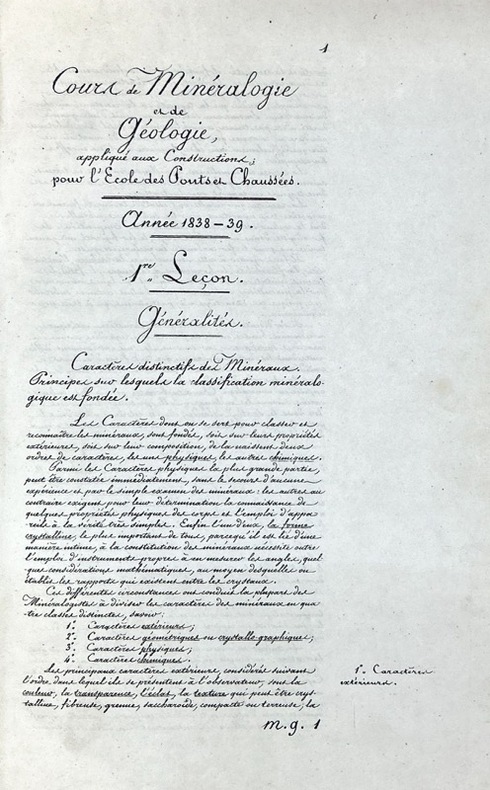 1
Cours de Minéralogie
et de
Géologie,
appliqué aux Constructions,
pour l'Ecole des Ponts et Chaussées.
Année 1838-39.
1re Leçon.
Généralités.
Caractères distinctifs des Minéraux.
Principes sur lesquels la classification minéralo-
gique est fondée.
Les Caractères dont on se sert pour classer et
reconnaître les minéraux, sont fondés, soit sur leurs propriétés
extérieures, soit sur leur composition, de la naissent deux
ordres de caractères, les uns physiques, les autres chimiques.
Parmi les Caractères physiques la plus grande partie,
peut être constatée immédiatement, sans le secours d'aucune
expérience et par le simple examen des minéraux: les autres au
contraire exigent pour leur détermination la connaissance de
quelques propriétés physiques des corps et l'emploi d'appa-
reils à la vérité très simples. Enfin l'un d'eux, la forme
crystalline, le plus important de tous, parcequ'il est lié d'une
manière intime, à la constitution des minéraux nécessite outre
l'emploi d'instruments propres à mesurer les angles, quel
que considérations mathématiques, au moyen desquelles on
établit les rapports qui existent entre les crystaux.
Ces différentes circonstances ont conduit la plupart des
Minéralogistes à diviser les caractères des minéraux en qua
tre classes distinctes, savoir:
1º Caractères extérieurs;
2º Caractères géométriques ou crystallographiques;
3º Caractères physiques;
4º Caractères chimiques.
Les principaux caractères extérieurs, considérés suivant
l'ordre, dans lequel ils se présentent à l'observateur, sont la
couleur, la transparence, l'éclat, la texture qui peut être crys-
talline, fibreuse, grenue, saccharoïde, compacte ou terreuse; la
1º Caractères
extérieurs.
m.g. 1